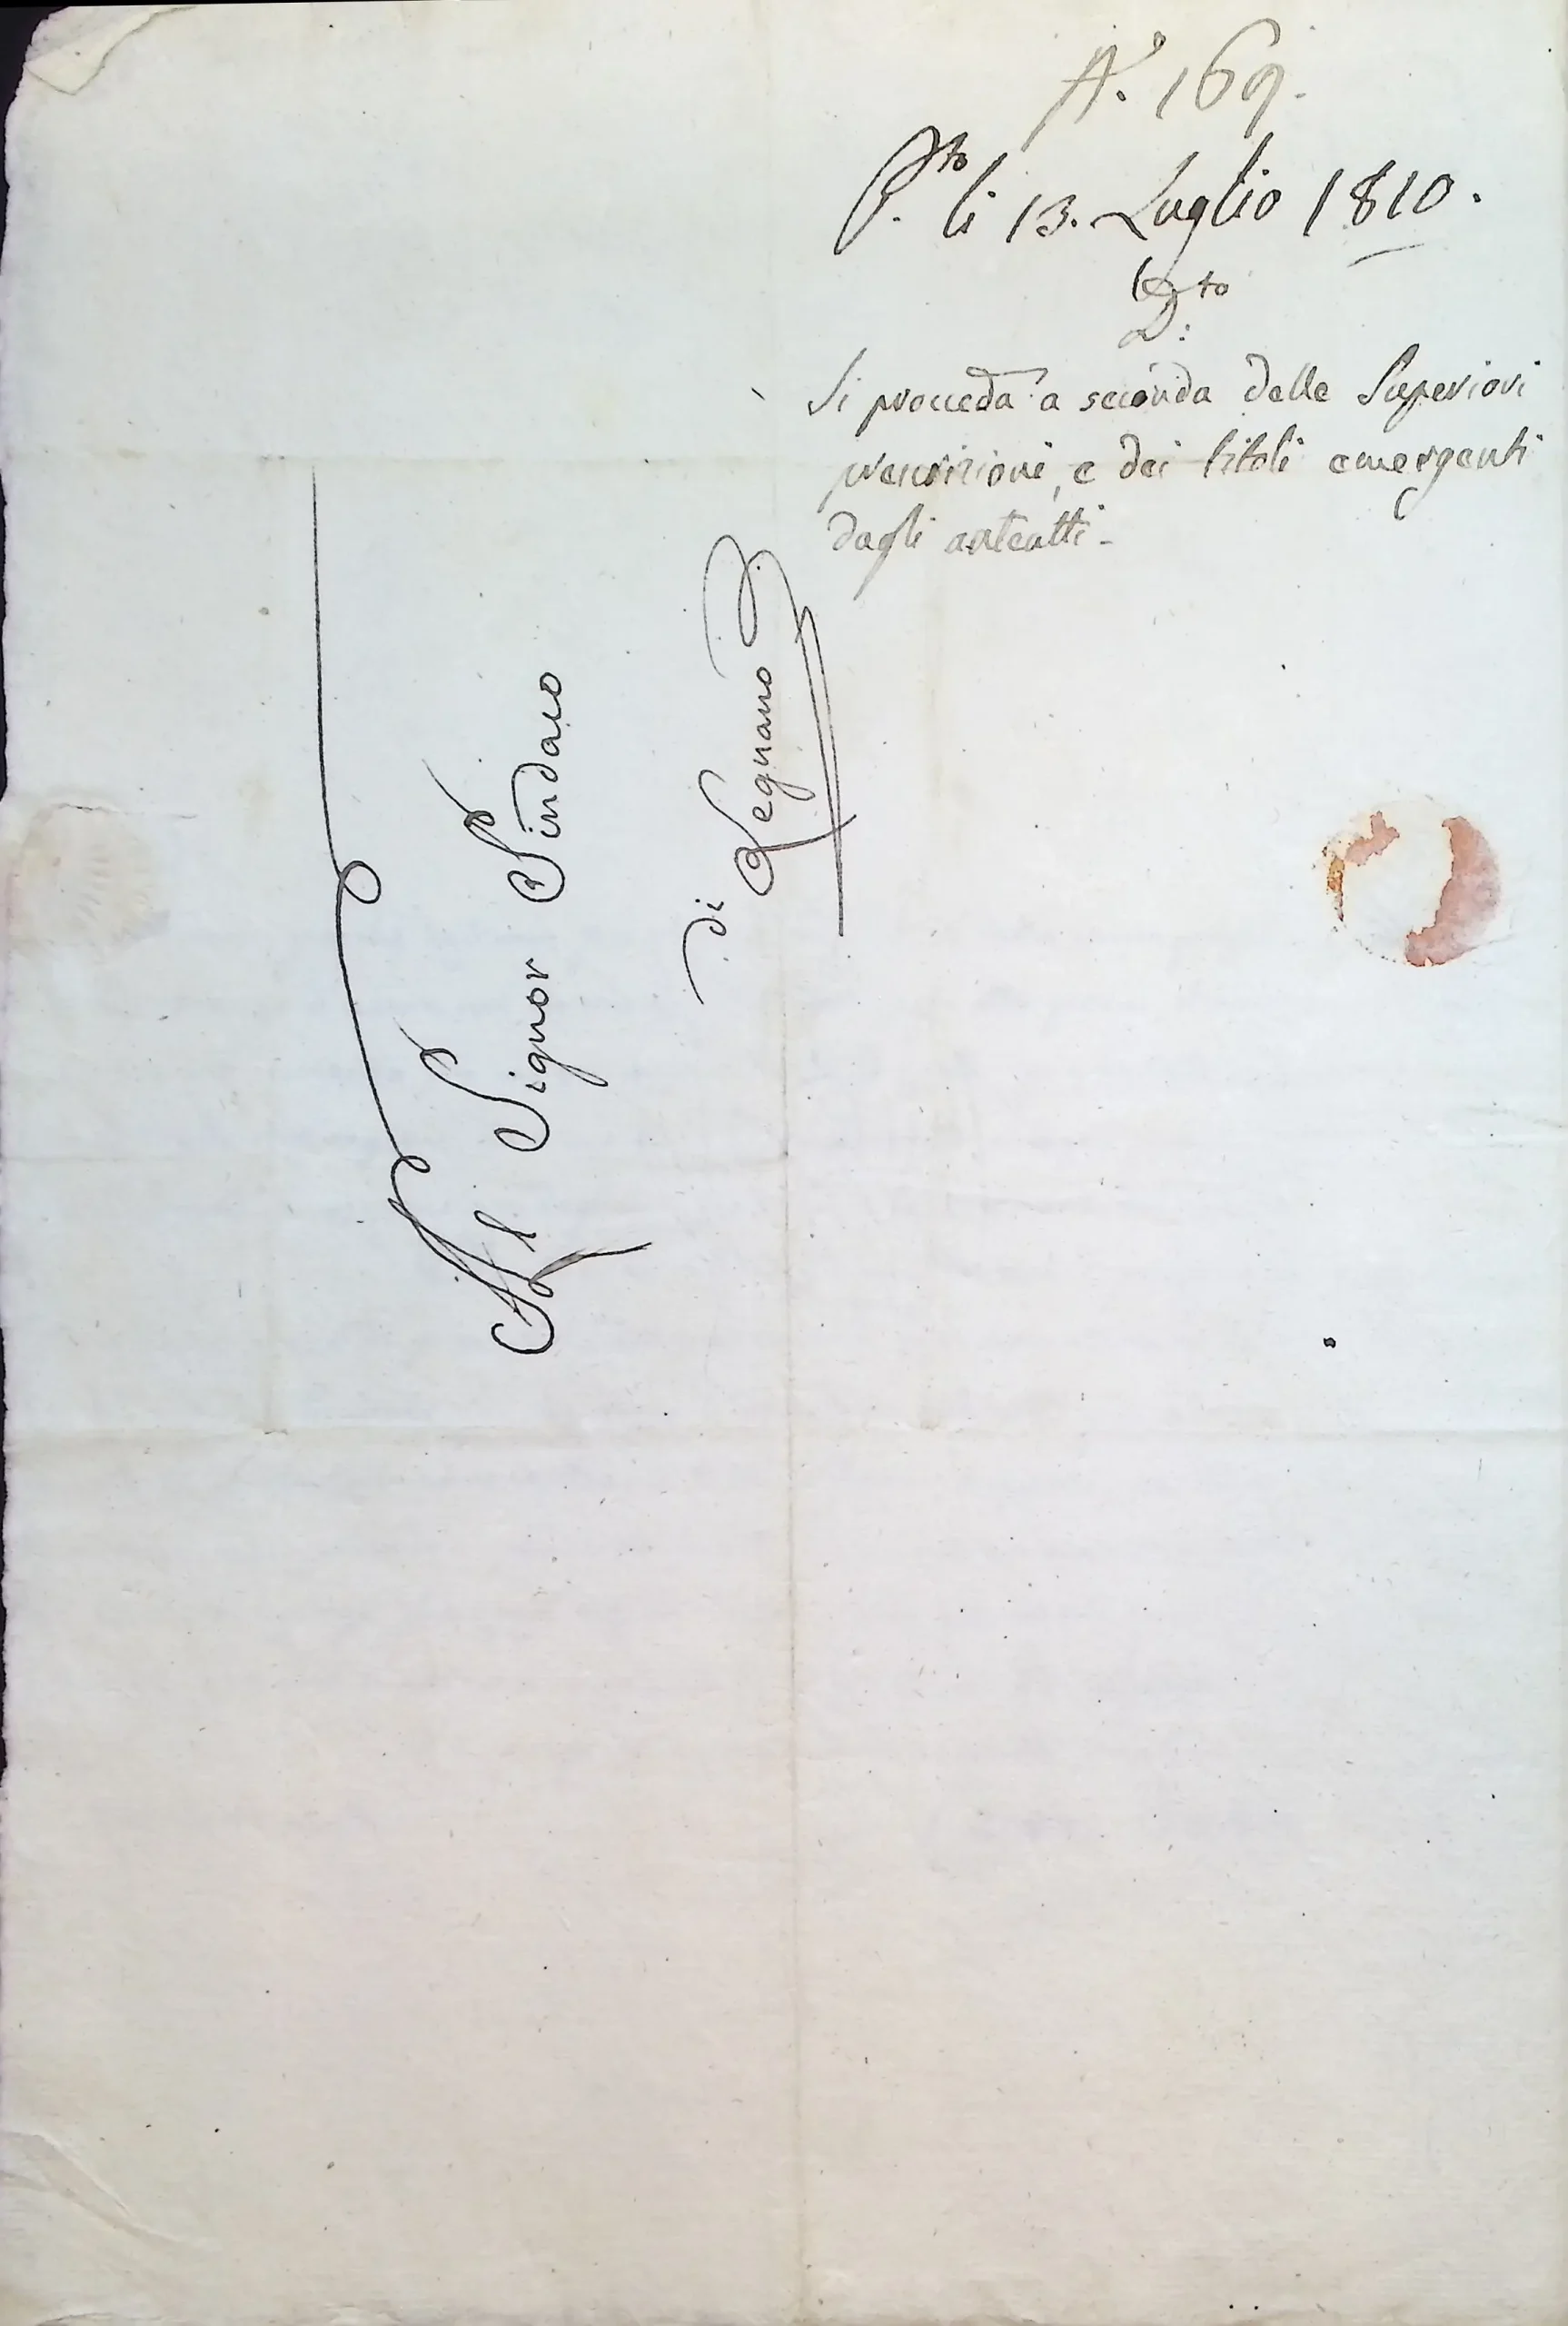 A.° 169.
P.to li 13. Luglio 1810.
D.to
Si proceda a seconda delle Superiori
prescrizioni, e dei titoli emergenti
dagli anteatti -
Al Signor Sindaco
di Legnano